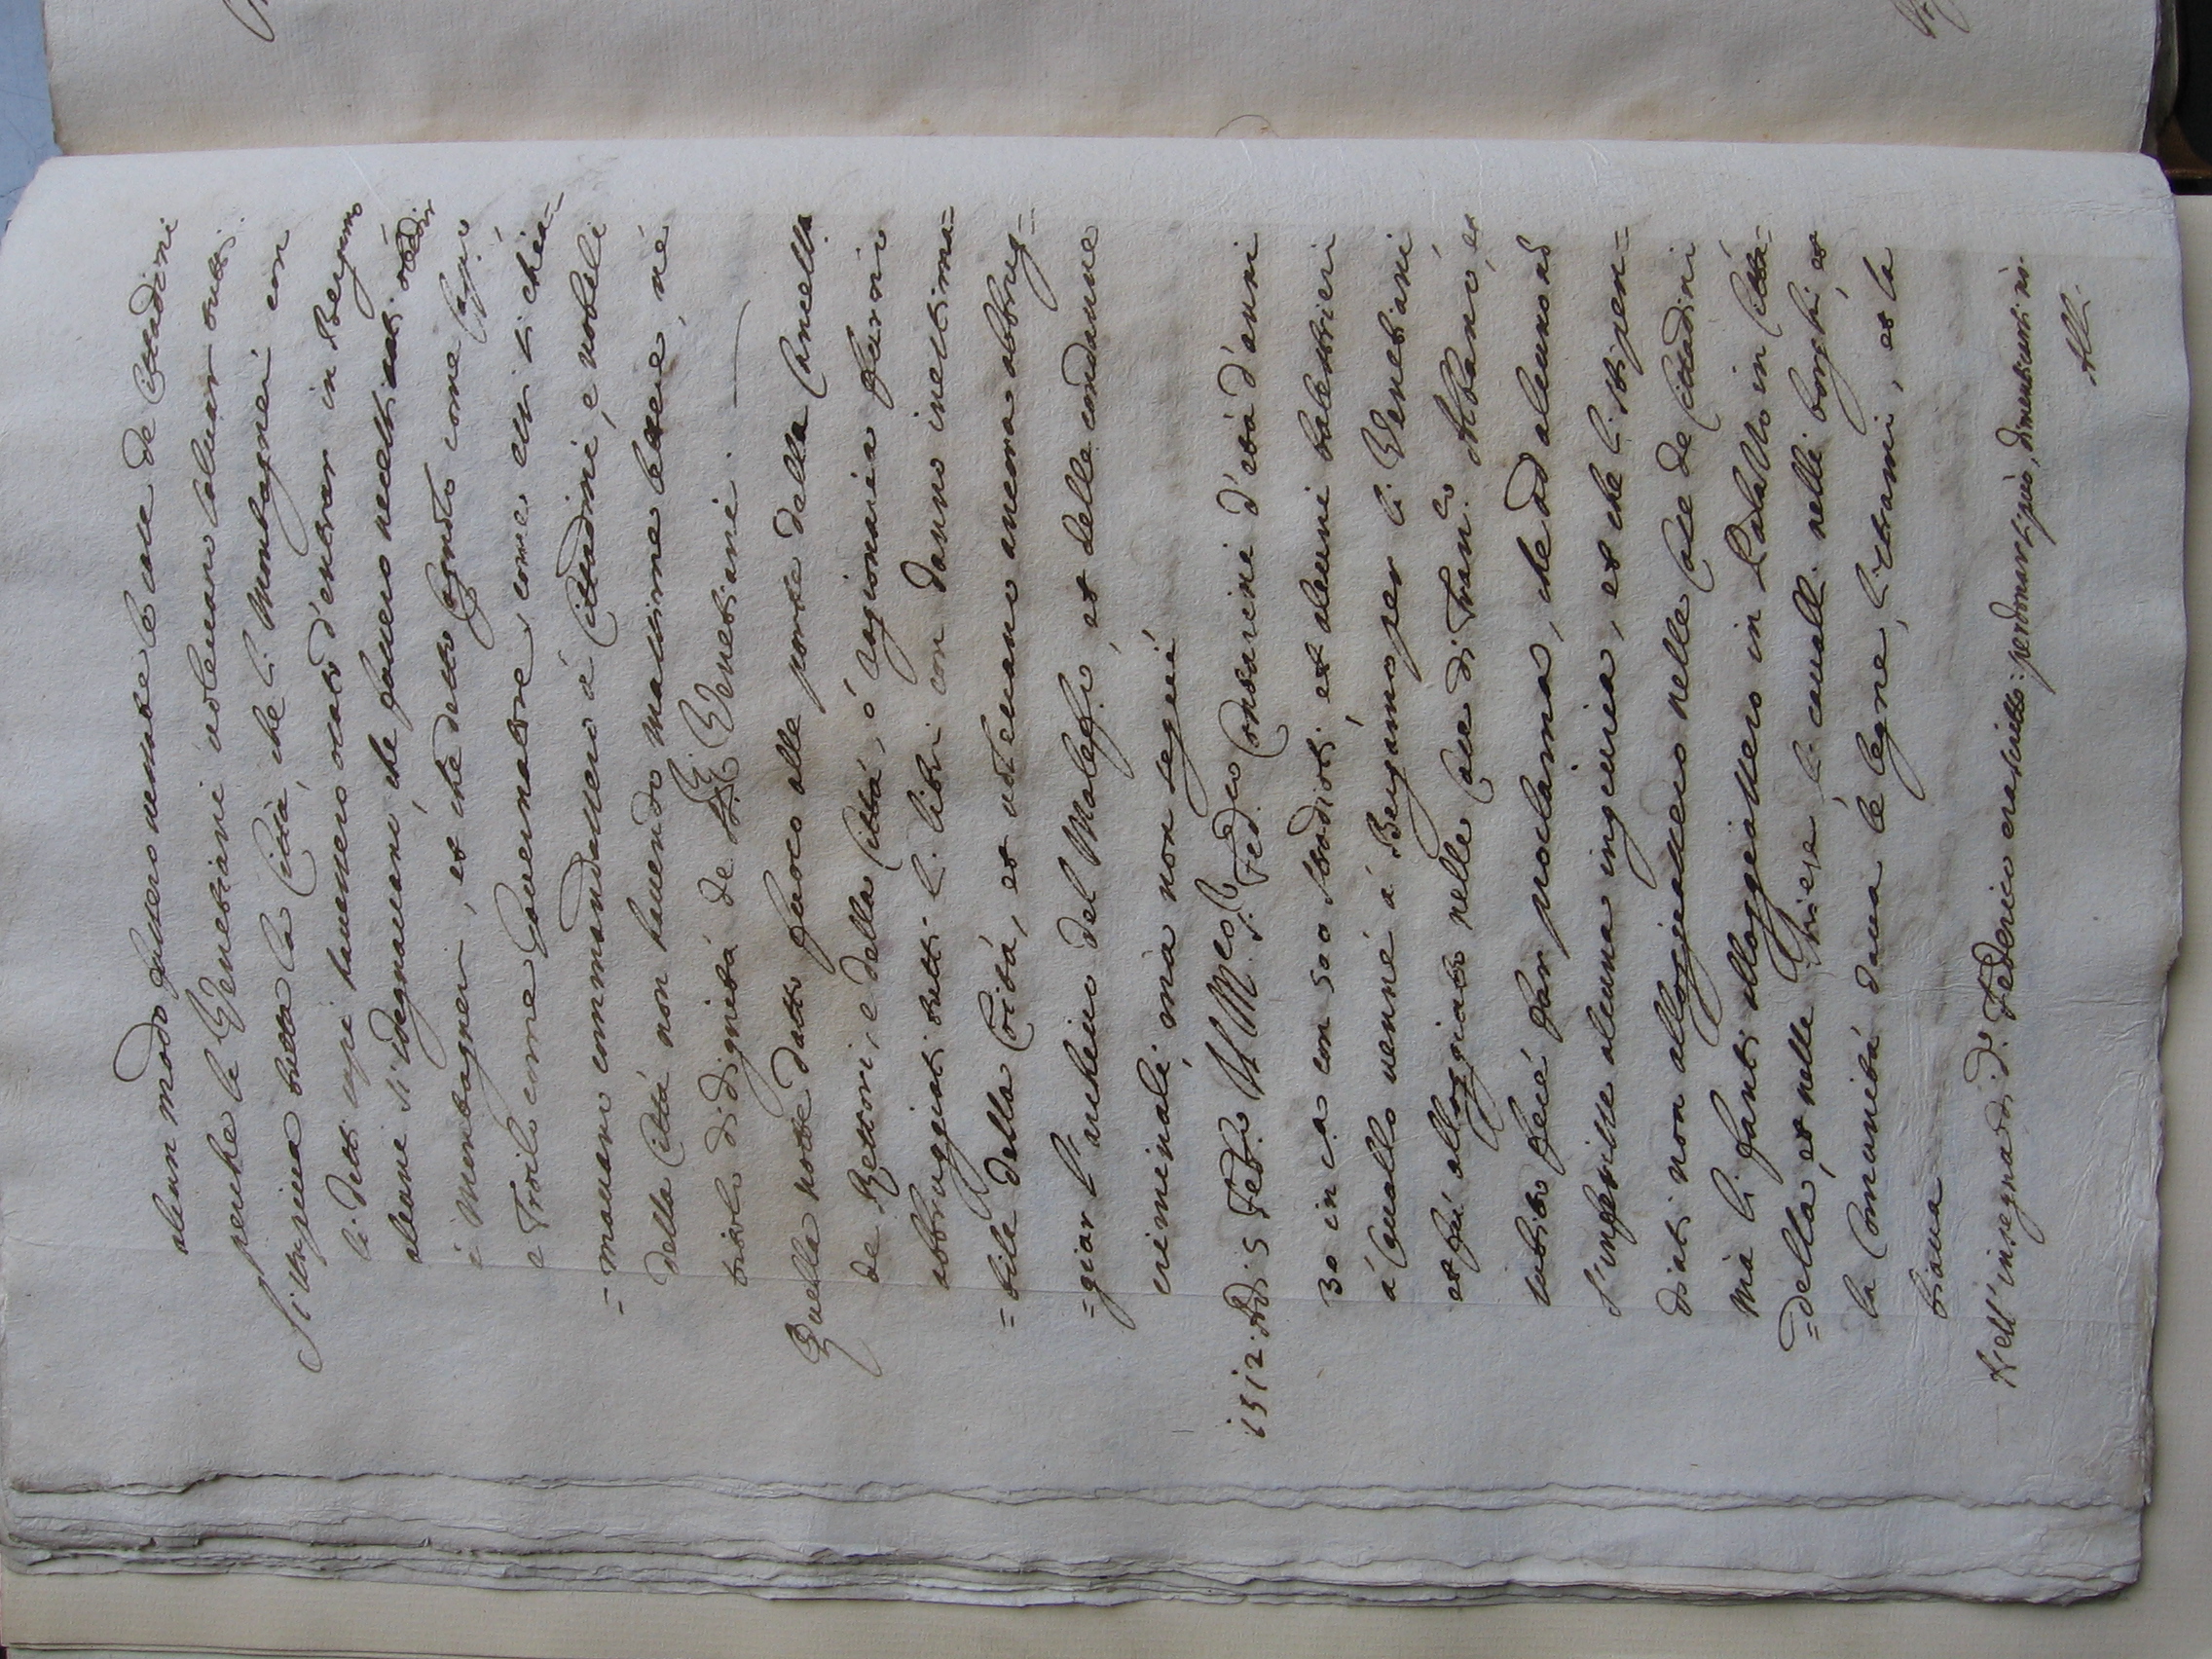 alcun modo fussero menate le case de Cittadini
perche li Venetiani voleuano saluar tutti.
Si sapeua tutta la Città, che li Montagneri con
li detti capi hauessero ocato d'entrar in Bergomo
alcuni si sdegnauano, che fussero necessitati obedir
i Montagneri, et che detto Cagnolo come Capo
e Troilo come Gouernatore, come essi si chia=
=mauano commandassero à Cittadini, e nobili
della Città non hauendo massime lettere, nè
titolo di dignità de SS. Venetiani.
Quella notte datto fuoco alle porte della Cancella
de Rettori, e della Città, ò ragionaria furno
abbruggiati tutti li libri con danno inestima=
=bile della Città, et uoleuano ancora abbrug=
=giar l'archiuo del Maleficio, et delle condanne
criminali, ma non seguì
1512. Adi 5 Febro Il M.co S.r Fed.co Contarini d'età d'anni
30 in ca con 500 stradioti, et alcuni balestrieri
à Cauallo uenne à Bergamo per li Venetiani
et fù alloggiato nelle Case di Fran.co Albano, et
subito fece far proclama, che ad alcuno nò
s'inferisse alcuna ingiuria, et che li stipen=
diati non alloggiassero nelle Case de Cittadini
ma li fanti alloggiassero in Palazzo in Citta=
=della, et nelle Chiese li caualli nelli borghi, et
la Comunità daua le legne, li strami, et la
biaua
Nell'insegna di d.o Federico era scritto: perdonar si può, dimenticarsi nò.
All.